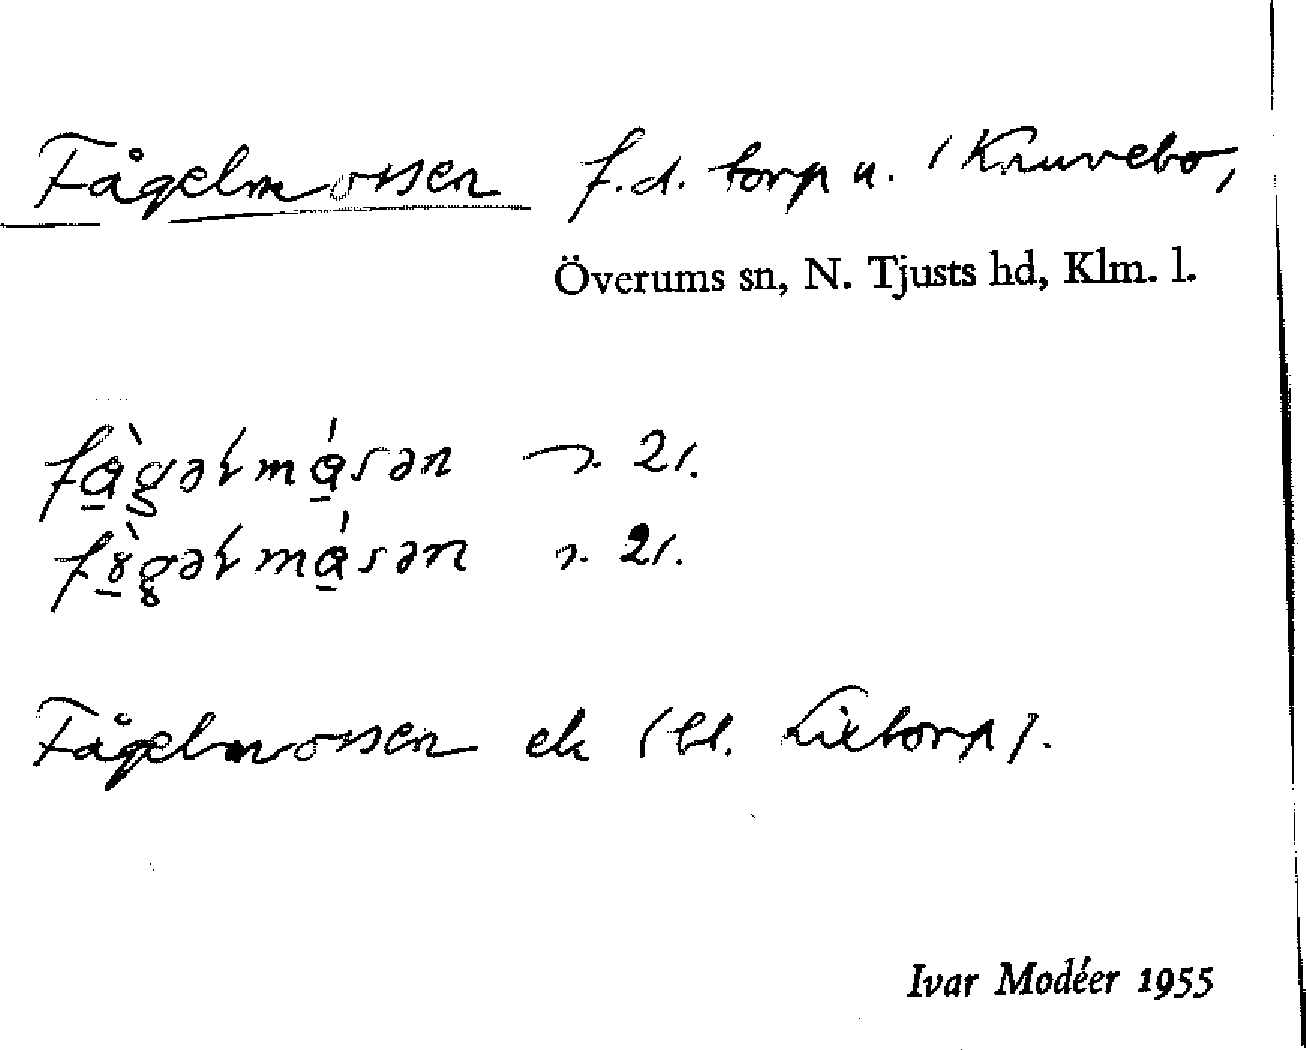 Fågelmossen f.d. torp u. Kruvebo,
Överums sn, N. Tjusts hd, Klm. l.
fàgəłmásən 21.
fògəłmásən 21.
Fågelmossen ek (bl. Lixtorp).
Ivar Modéer 1955